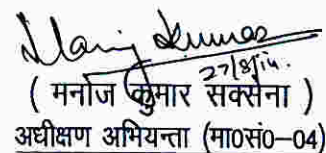 Manoj Kumar
27/8/14.
( मनोज कुमार सक्सेना )
अधीक्षण अभियन्ता (मा0सं0-04)